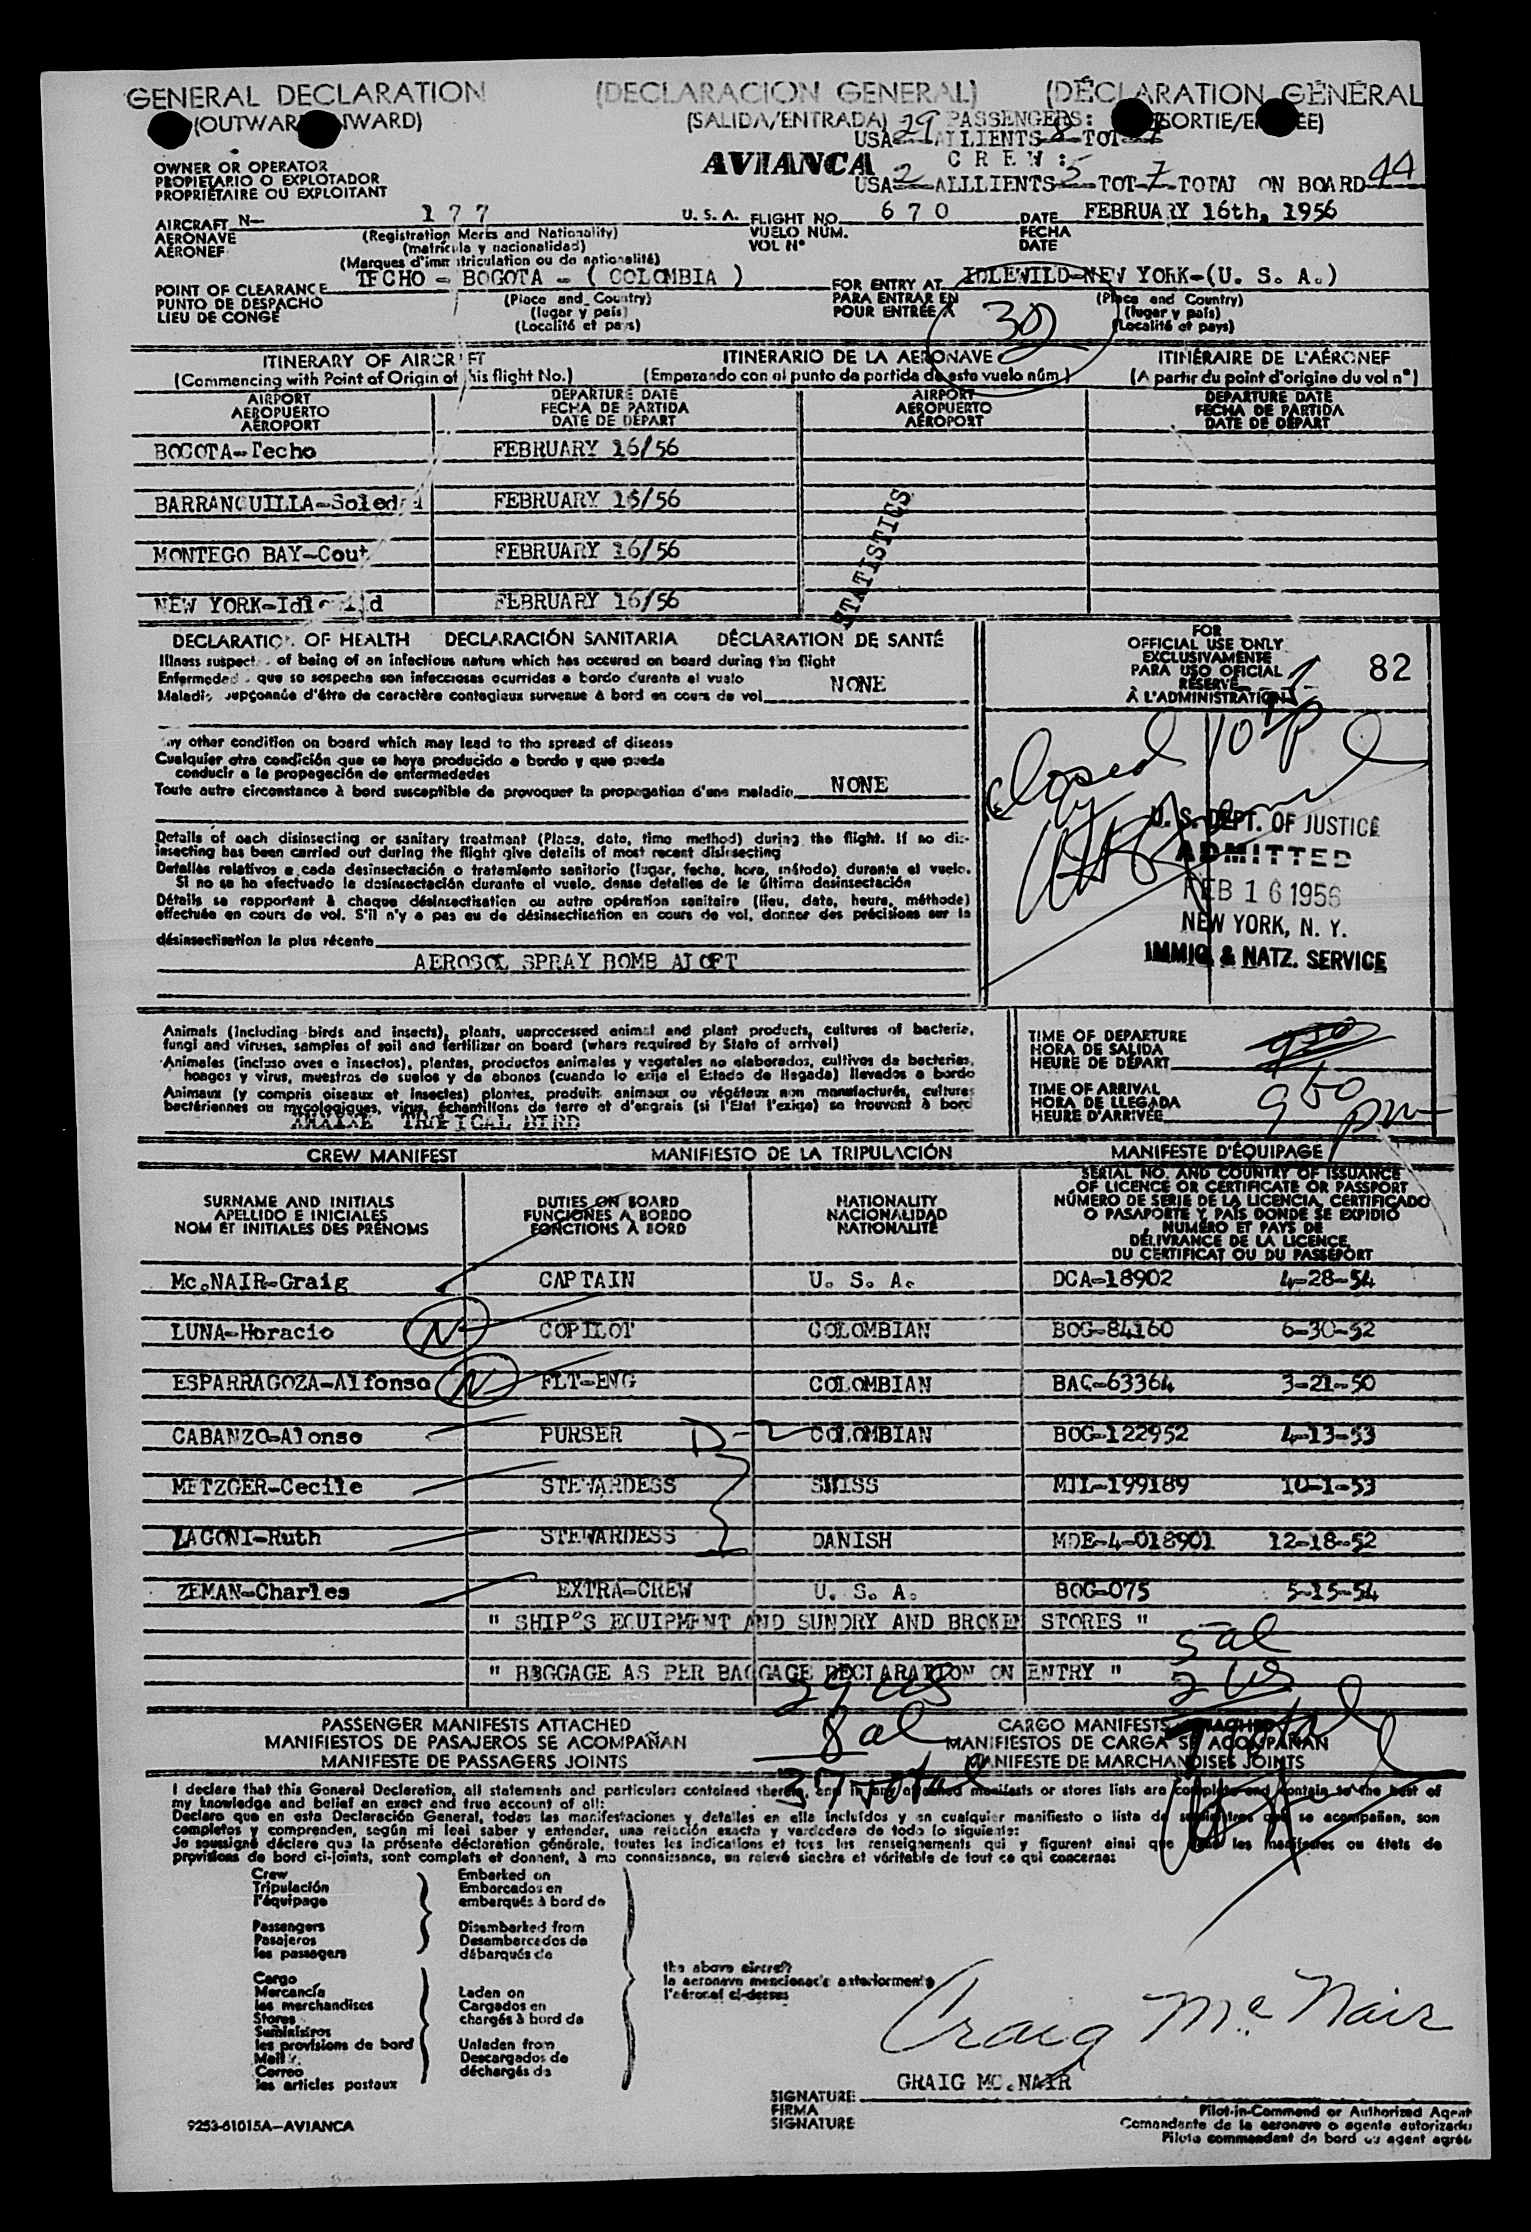 GENERAL DECLARATION (DECLARACION GENERAL) (DÉCLARATION GÉNÉRAL
(OUTWARD (SALIDA/ENTRADA) PASSENGERS: SORTIE/
USA 29 ALLIENTS 8 TOT
OWNER OR OPERATOR AVIANCA CREW:
PROPIETARIO O EXPLOTADOR USA 2 ALLLIENTS 5 TOT 7 TOTAL ON BOARD 44
PROPRIÉTAIRE OU EXPLOITANT
AIRCRAFT N- 177 U. S. A. FLIGHT NO. 670 DATE FEBRUARY 16th, 1956
AERONAVE (Registration Marks and Nationality) VUELO NÚM. FECHA
AÉRONEF (matrícula y nacionalidad) VOL Nº DATE
(Marques d'immatriculation ou de nationalité)
POINT OF CLEARANCE TECHO - BOGOTA - ( COLOMBIA ) FOR ENTRY AT IDLEWILD-NEW YORK-(U. S. A.)
PUNTO DE DESPACHO (Place and Country) PARA ENTRAR EN (Place and Country)
LIEU DE CONGÉ (lugar y país) POUR ENTRÉE À (lugar y país)
(Localité et pays) (Localité et pays)
30
ITINERARY OF AIRCRAFT ITINERARIO DE LA AERONAVE ITINÉRAIRE DE L'AÉRONEF
(Commencing with Point of Origin of this flight No.) (Empezando con el punto de partida de este vuelo núm.) (A partir du point d'origine du vol nº)
AIRPORT DEPARTURE DATE AIRPORT DEPARTURE DATE
AEROPUERTO FECHA DE PARTIDA AEROPUERTO FECHA DE PARTIDA
AÉROPORT DATE DE DÉPART AÉROPORT DATE DE DÉPART
BOGOTA-Techo FEBRUARY 16/56
BARRANQUILLA-Soledad FEBRUARY 16/56
MONTEGO BAY-Cout FEBRUARY 16/56
NEW YORK-Idlewild FEBRUARY 16/56
STATISTICS
DECLARATION OF HEALTH DECLARACIÓN SANITARIA DÉCLARATION DE SANTÉ
Illness suspected of being of an infectious nature which has occured on board during the flight
Enfermedad que se sospecha son infecciosas ocurridas a bordo durante el vuelo
Maladie soupçonnée d'être de caractère contagieux survenue à bord en cours de vol NONE
Any other condition on board which may lead to the spread of disease
Cualquier otra condición que se haya producido a bordo y que pueda
conducir a la propagación de enfermedades
Toute autre circonstance à bord susceptible de provoquer la propagation d'une maladie NONE
Details of each disinsecting or sanitary treatment (Place, date, time method) during the flight. If no dis-
insecting has been carried out during the flight give details of most recent disinsecting
Detalles relativos a cada desinsectación o tratamiento sanitario (lugar, fecha, hora, método) durante el vuelo.
Si no se ha efectuado la desinsectación durante el vuelo, dense detalles de la última desinsectación
Détails se rapportant à chaque désinsectisation ou autre opération sanitaire (lieu, date, heure, méthode)
effectuée en cours de vol. S'il n'y a pas eu de désinsectisation en cours de vol, donner des précisions sur la
désinsectisation la plus récente
AEROSOL SPRAY BOMB ALOFT
FOR
OFFICIAL USE ONLY
EXCLUSIVAMENTE
PARA USO OFICIAL
RÉSERVÉ
À L'ADMINISTRATION
82
closed 10
by
U. S. DEPT. OF JUSTICE
ADMITTED
FEB 16 1956
NEW YORK, N. Y.
IMMIG. & NATZ. SERVICE
Animals (including birds and insects), plants, unprocessed animal and plant products, cultures of bacteria,
fungi and viruses, samples of soil and fertilizer on board (where required by State of arrival)
Animales (incluso aves e insectos), plantas, productos animales y vegetales no elaborados, cultivos de bacterias,
hongos y virus, muestras de suelos y de abonos (cuando lo exija el Estado de llegada) llevados a bordo
Animaux (y compris oiseaux et insectes) plantes, produits animaux ou végétaux non manufacturés, cultures
bactériennes ou mycologiques, virus, échantillons de terre et d'engrais (si l'Etat l'exige) se trouvant à bord
TROPICAL BIRD
TIME OF DEPARTURE
HORA DE SALIDA
HEURE DE DÉPART
TIME OF ARRIVAL
HORA DE LLEGADA
HEURE D'ARRIVÉE
9 50 pm
CREW MANIFEST MANIFIESTO DE LA TRIPULACIÓN MANIFESTE D'ÉQUIPAGE
SURNAME AND INITIALS
APELLIDO E INICIALES
NOM ET INITIALES DES PRÉNOMS
DUTIES ON BOARD
FUNCIONES A BORDO
FONCTIONS À BORD
NATIONALITY
NACIONALIDAD
NATIONALITÉ
SERIAL NO. AND COUNTRY OF ISSUANCE
OF LICENCE OR CERTIFICATE OR PASSPORT
NÚMERO DE SERIE DE LA LICENCIA, CERTIFICADO
O PASAPORTE Y PAÍS DONDE SE EXPIDIÓ
NUMÉRO ET PAYS DE
DÉLIVRANCE DE LA LICENCE,
DU CERTIFICAT OU DU PASSEPORT
Mc.NAIR-Graig CAPTAIN U. S. A. DCA-18902 4-28-54
LUNA-Horacio N COPILOT COLOMBIAN BOG-84160 6-30-52
ESPARRAGOZA-Alfonso N FLT-ENG COLOMBIAN BAC-63364 3-21-50
CABANZO-Alonso PURSER D-2 COLOMBIAN BOG-122952 4-13-53
METZGER-Cecile STEWARDESS SWISS MIL-199189 10-1-53
LAGONI-Ruth STEWARDESS DANISH MDE-4-018901 12-18-52
ZEMAN-Charles EXTRA-CREW U. S. A. BOG-075 5-15-54
" SHIP'S EQUIPMENT AND SUNDRY AND BROKEN STORES "
5 al
" BAGGAGE AS PER BAGGAGE DECLARATION ON ENTRY "
29 us 2 us
PASSENGER MANIFESTS ATTACHED 8 al CARGO MANIFESTS ATTACHED
MANIFIESTOS DE PASAJEROS SE ACOMPAÑAN MANIFIESTOS DE CARGA SE ACOMPAÑAN
MANIFESTE DE PASSAGERS JOINTS MANIFESTE DE MARCHANDISES JOINTS
37 total
I declare that this General Declaration, all statements and particulars contained therein, and in any attached manifests or stores lists are complete and contain to the best of
my knowledge and belief an exact and true account of all:
Declaro que en esta Declaración General, todas las manifestaciones y detalles en ella incluídos y en cualquier manifiesto o lista de suministros que se acompañen, son
completos y comprenden, según mi leal saber y entender, una relación exacta y verdadera de todo lo siguiente:
Je soussigné déclare que la présente déclaration générale, toutes les indications et tous les renseignements qui y figurent ainsi que les manifestes ou états de
provisions de bord ci-joints, sont complets et donnent, à ma connaissance, un relevé sincère et véritable de tout ce qui concerne:
Crew Embarked on
Tripulación Embarcados en
l'équipage embarqués à bord de
Passengers Disembarked from
Pasajeros Desembarcados de
les passagers débarqués de
the above aircraft
la aeronave mencionada anteriormente
l'aéronef ci-dessus
Cargo
Mercancía Laden on
les merchandises Cargados en
Stores chargés à bord de
Suministros
les provisions de bord Unladen from
Mail Descargados de
Correo déchargés de
les articles postaux
Craig Mc Nair
GRAIG MC.NAIR
SIGNATURE
FIRMA
SIGNATURE
Pilot-in-Command or Authorized Agent
Comandante de la aeronave o agente autorizado
Pilote commandant de bord ou agent agréé
9253-61015A-AVIANCA